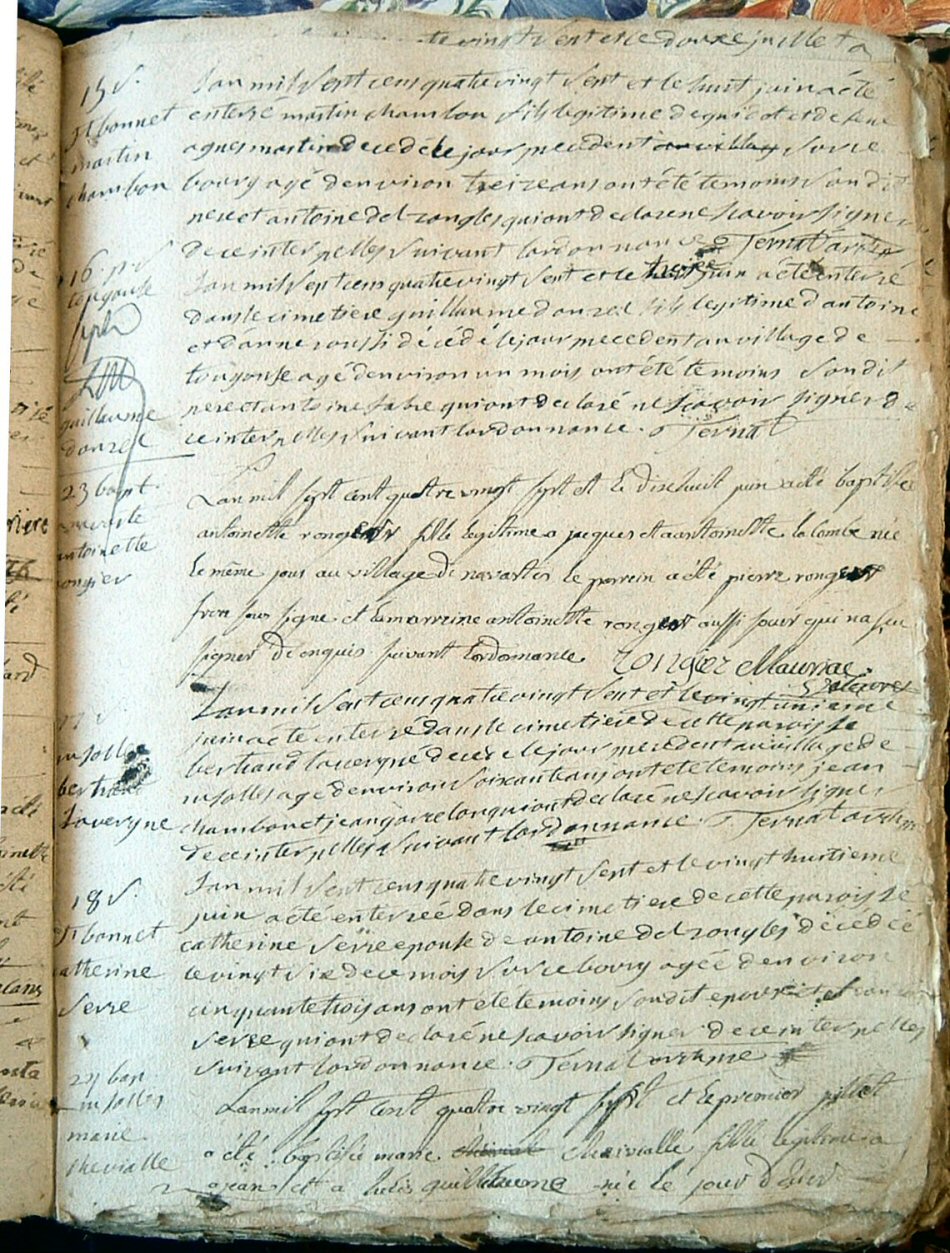 te vingt sept et le douze juillet a
15 S.
St bonnet
martin
chambon
Lan mil sept cens quatre vingt sept et le huit juin a été
enterré martin chambon fils legitime de guidot et de feue
agnes martin decedé le jour precedent sur ce
bourg agé denviron treize ans ont été temoins son dit
pere et antoine delzongles qui ont declaré ne scavoir signer
de ce interpelles suivant lordonnance Ternat
16 S
guillaume
donzel
Lan mil sept cens quatre vingt sept et le treize juin a été enterré
dans le cimetiere guillaume donzel fils legitime dantoine
et danne roussi décédé le jour precedent au village de
agé denviron un mois ont été temoins son dit
pere et antoine fabre qui ont declaré ne scavoir signer de
ce interpelles suivant lordonnance. Ternat
23 bapt.
navaste
antoinette
rongier
Lan mil sept cent quatre vingt sept et le dixhuit juin a été baptisée
antoinette rongier fille legitime a jacques et a antoinette lacombe née
le même jour au village de navastes le parrein a été pierre rongier
frere sous signe et la marreine antoinette rongier aussi soeur qui na su
signer de enquis suivant lordonnance Rongier Mauriac
17 S.
bertrand
Lavergne
Lan mil sept cens quatre vingt sept et le vingt unieme
juin a été enterré dans le cimetiere de cette paroisse
bertrand lavergne decedé le jour precedent au village de
agé denviron soixante ans ont été temoins jean
chambon et jean qui ont declaré ne scavoir signer
de ce interpelles suivant lordonnance. Ternat
18 S.
St bonnet
catherine
Serre
Lan mil sept cens quatre vingt sept et le vingt huitieme
juin a été enterrée dans le cimetiere de cette paroisse
catherine serre epouse de antoine delzongles décedée
le vingt six de ce mois sur ce bourg agée denviron
cinquante trois ans ont été temoins son dit epoux et
serre qui ont declaré ne scavoir signer de ce interpelles
suivant lordonnance. Ternat
24 bap
marie
chevialle
Lan mil sept cent quatre vingt sept et le premier juillet
a été baptisée marie chevialle fille legitime a
jean et a guillaume née le jour dhier